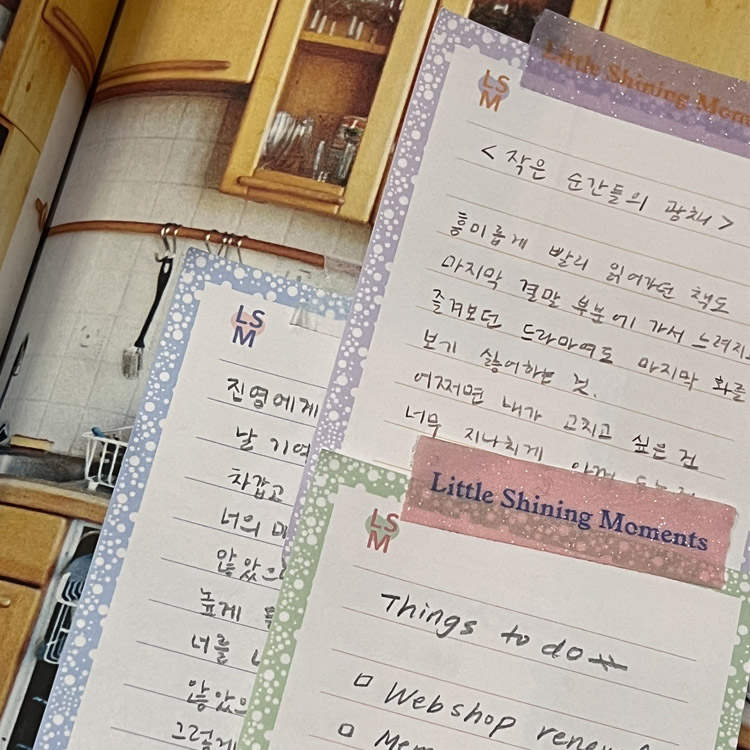 LSM
Little Shining Mom
<작은 순간들의 광채>
흥미롭게 빨리 읽어가던 책도
마지막 결말 부분에 가서 느려지
즐겨보던 드라마여도 마지막 화를
보기 싫어하는 것.
어쩌면 내가 고치고 싶은 건
너무 지나치게 아껴
LSM
진영에게
날 기억
차갑고
너의
않았으
높게
너를
않았으
그렇게
LSM
Little Shining Moments
Things to do
Webshop renew
Mem